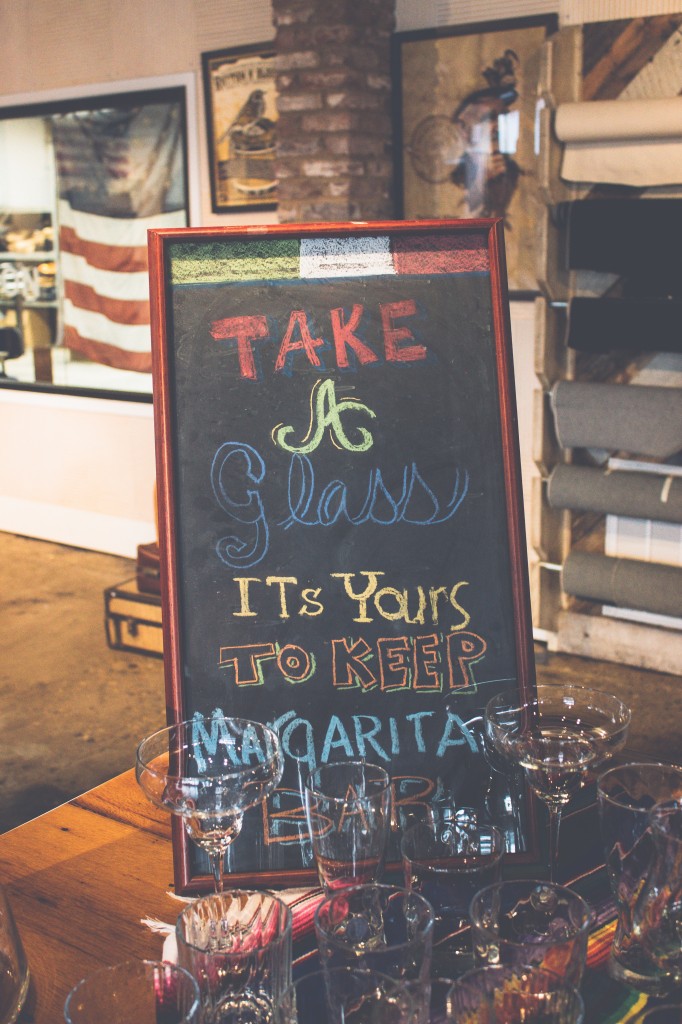 TAKE
A
Glass
ITs Yours
TO KEEP
MARGARITA
BAR